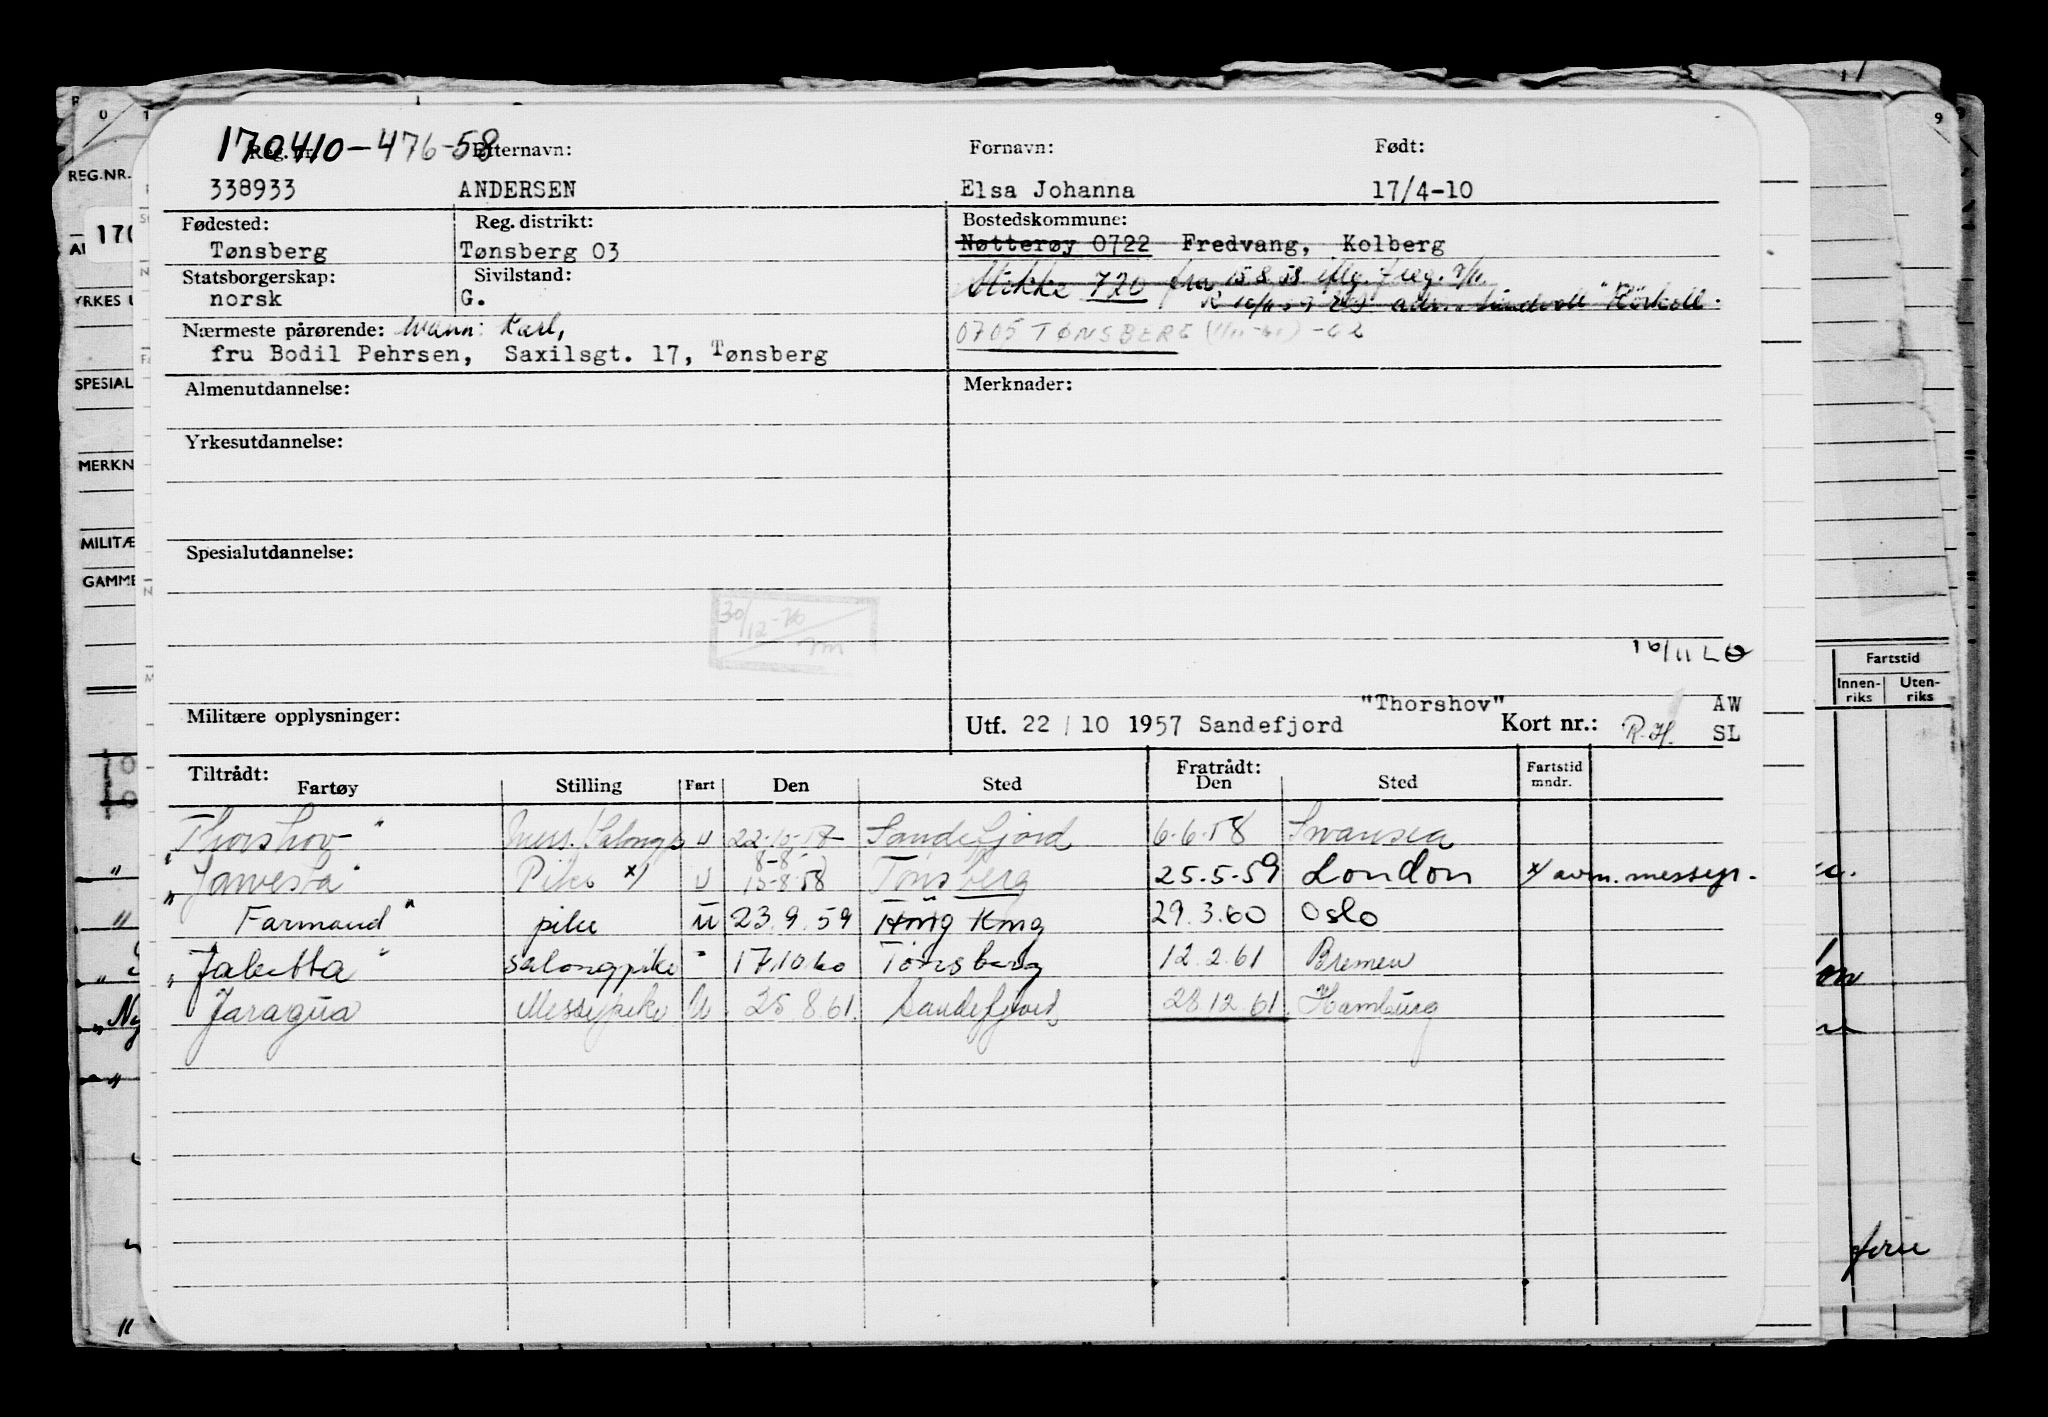 170410-476-58
Reg. nr. Etternavn: Fornavn: Født:
338933 ANDERSEN Elsa Johanna 17/4-10
Fødested: Reg. distrikt: Bostedskommune:
Tønsberg Tønsberg 03 Nøtterøy 0722 Fredvang, Kolberg
Statsborgerskap: Sivilstand: 720 fra 15.8.58
norsk G.
Nærmeste pårørende: Mann: Karl, 0705 TØNSBERG
fru Bodil Pehrsen, Saxilsgt. 17, Tønsberg
Almenutdannelse: Merknader:
Yrkesutdannelse:
Spesialutdannelse:
30/12-70
16/11 LO
Militære opplysninger: "Thorshov" AW
Utf. 22/10 1957 Sandefjord Kort nr.: R.H. SL
Tiltrådt: Fratrådt: Fartstid
Fartøy Stilling Fart Den Sted Den Sted mndr.
Thorshov" Mess./Salongp u 22-10-57 Sandefjord 6-6-58 Swansea
8-8-
"Jawesta" Pike x) u 15-8-58 Tønsberg 25.5.59 London x) avm. messegr.
" Farmand" pike u 23.9.59 Hong Kong 29.3.60 Oslo
"Jabetta" salongpike " 17.10.60 Tønsberg 12.2.61 Bremen
Jaragua Messepike U 25.8.61. Sandefjord 28.12.61. Hamburg
REG.NR.
170
YRKES
SPESIAL
MERKN
MILITÆ
GAMME
Fartstid
Innen-riks Uten-riks